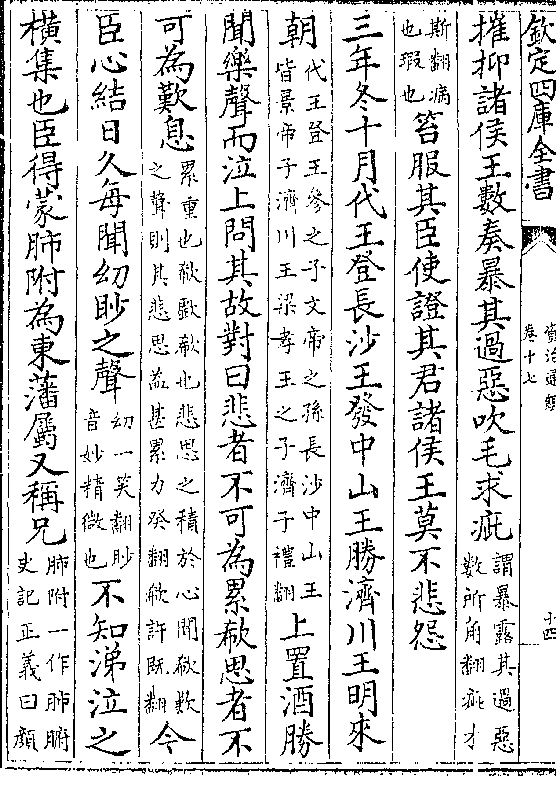 欽定四庫全書
資治通鑑
卷十七
十四
摧抑諸侯王數奏暴其過惡吹毛求疵謂暴露其過惡
數所角翻疵才
斯翻病
也瑕也笞服其臣使證其君諸侯王莫不悲怨
三年冬十月代王登長沙王發中山王勝濟川王明來
朝代王登王參之子文帝之孫長沙中山王
皆景帝子濟川王梁孝王之子濟子禮翻上置酒勝
聞樂聲而泣上問其故對曰悲者不可為累欷思者不
可為歎息累重也欷歔欷也悲思之積於心聞欷歎
之聲則其悲思益甚累力癸翻欷許既翻今
臣心結日久每聞幼眇之聲幼一笑翻眇
音妙精微也不知涕泣之
橫集也臣得蒙肺附為東藩屬又稱兄肺附一作肺腑
史記正義曰顏